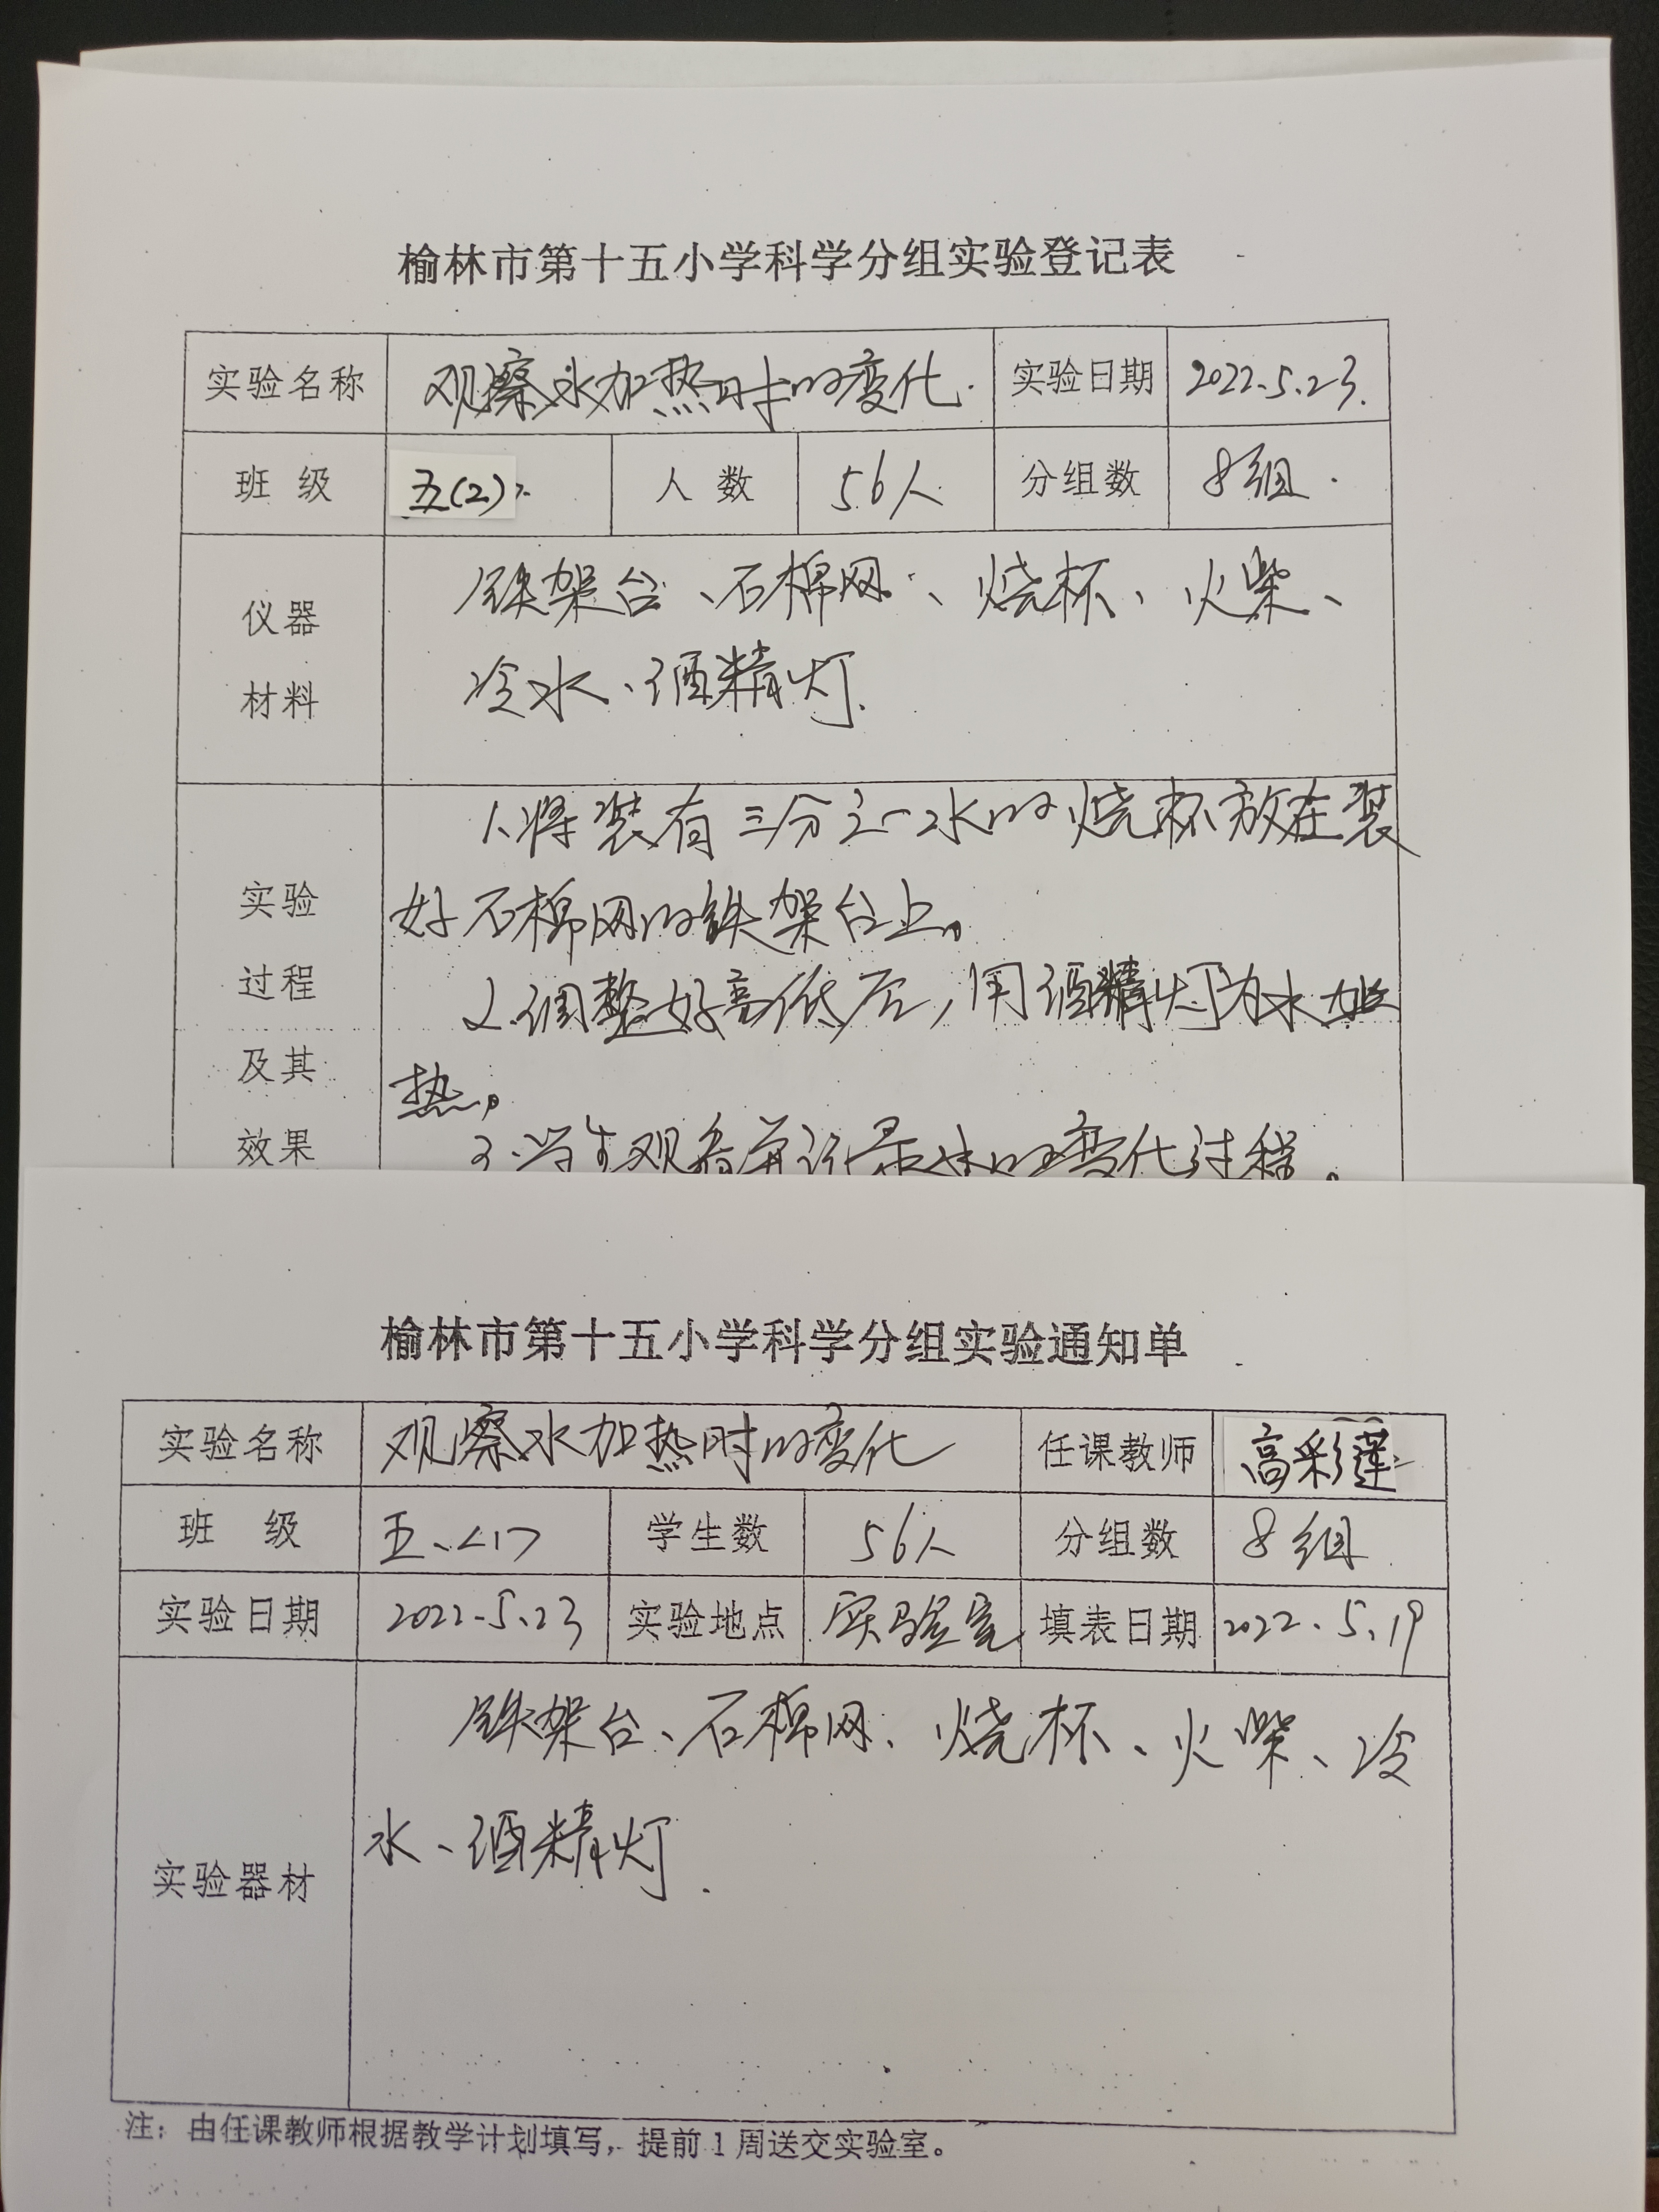 榆林市第十五小学科学分组实验登记表
实验名称 观察水加热时的变化. 实验日期 2022.5.23.
班 级 五(2) 人 数 56人 分组数 8组.
仪器
材料
铁架台、石棉网、烧杯、火柴、
冷水、酒精灯.
实验
过程
及其
效果
1.将装有三分之一水的烧杯放在装
好石棉网的铁架台上。
2.调整好高低后,用酒精灯为水加
热。
3.学生观看并记录水的变化过程。
榆林市第十五小学科学分组实验通知单
实验名称 观察水加热时的变化 任课教师 高彩莲
班 级 五、<1> 学生数 56人 分组数 8组.
实验日期 2022.5.23 实验地点 实验室 填表日期 2022.5.19
实验器材
铁架台、石棉网、烧杯、火柴、冷
水、酒精灯.
注：由任课教师根据教学计划填写，提前1周送交实验室。